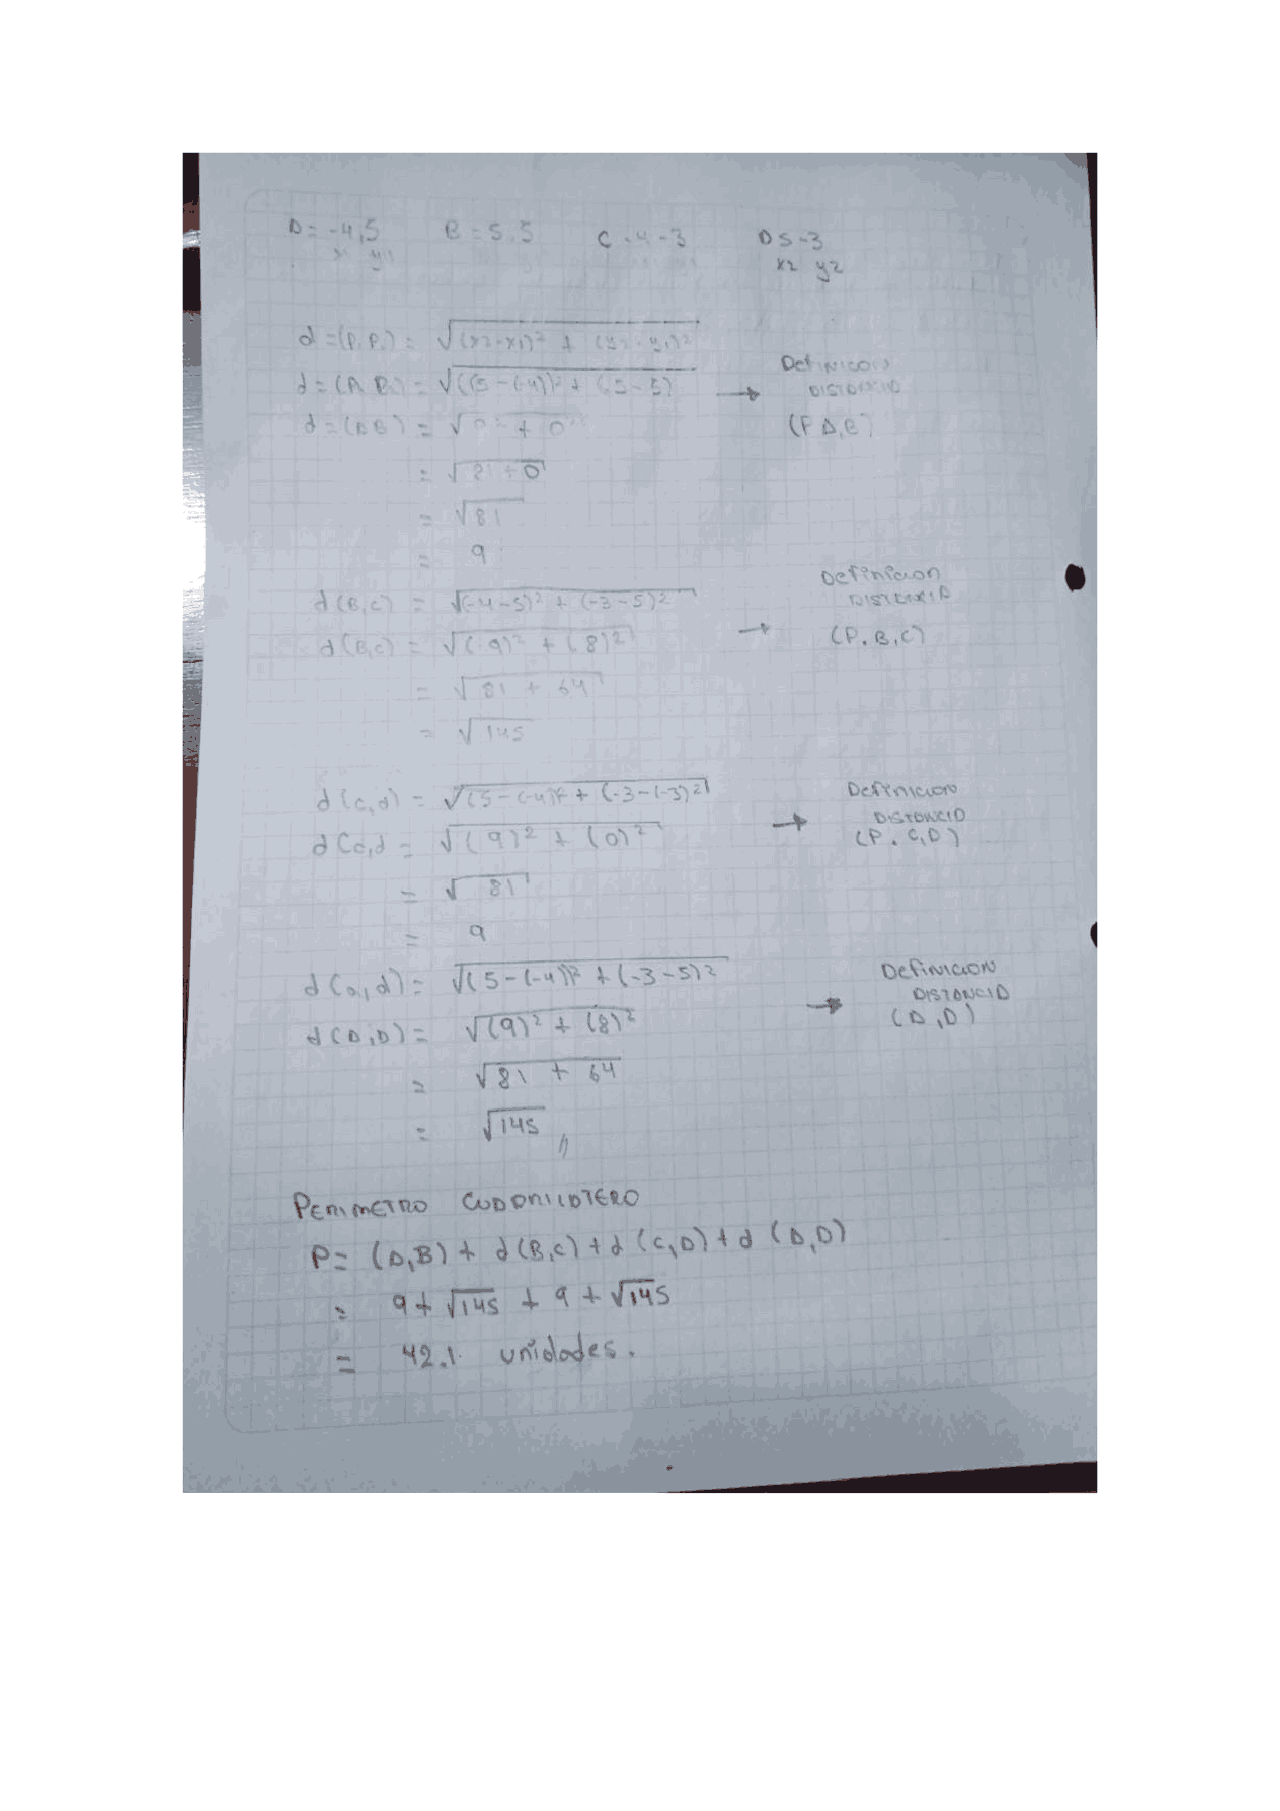 A = -4,5 B = 5,5 C -4 -3 D 5 -3
x1 y1 x2 y2
d = (P, P2) = √(x2-x1)² + (y2-y1)²
d = (A B) = √((5-(-4))² + (5-5) → Definicon Distancia
d = (A B) = √ + 0 (P A,B)
= √81+0
= √81
= 9
d(B,C) = √(-4-5)² + (-3-5)² Definicion Distancia
d(B,C) = √(9)² + (8)² → (P. B,C)
= √81 + 64
= √145
d(c,d) = √(5-(-4)² + (-3-(-3)² Definicion Distancia
d(c,d = √(9)² + (0)² → (P. C,D)
= √81
= 9
d(a,d) = √(5-(-4))² + (-3-5)² Definicion Distancia
d(A,D) = √(9)² + (8)² → (A,D)
= √81 + 64
= √145 //
PERIMETRO CUADRILATERO
P = (A,B) + d(B,C) + d(C,D) + d(A,D)
= 9 + √145 + 9 + √145
= 42.1 unidades.